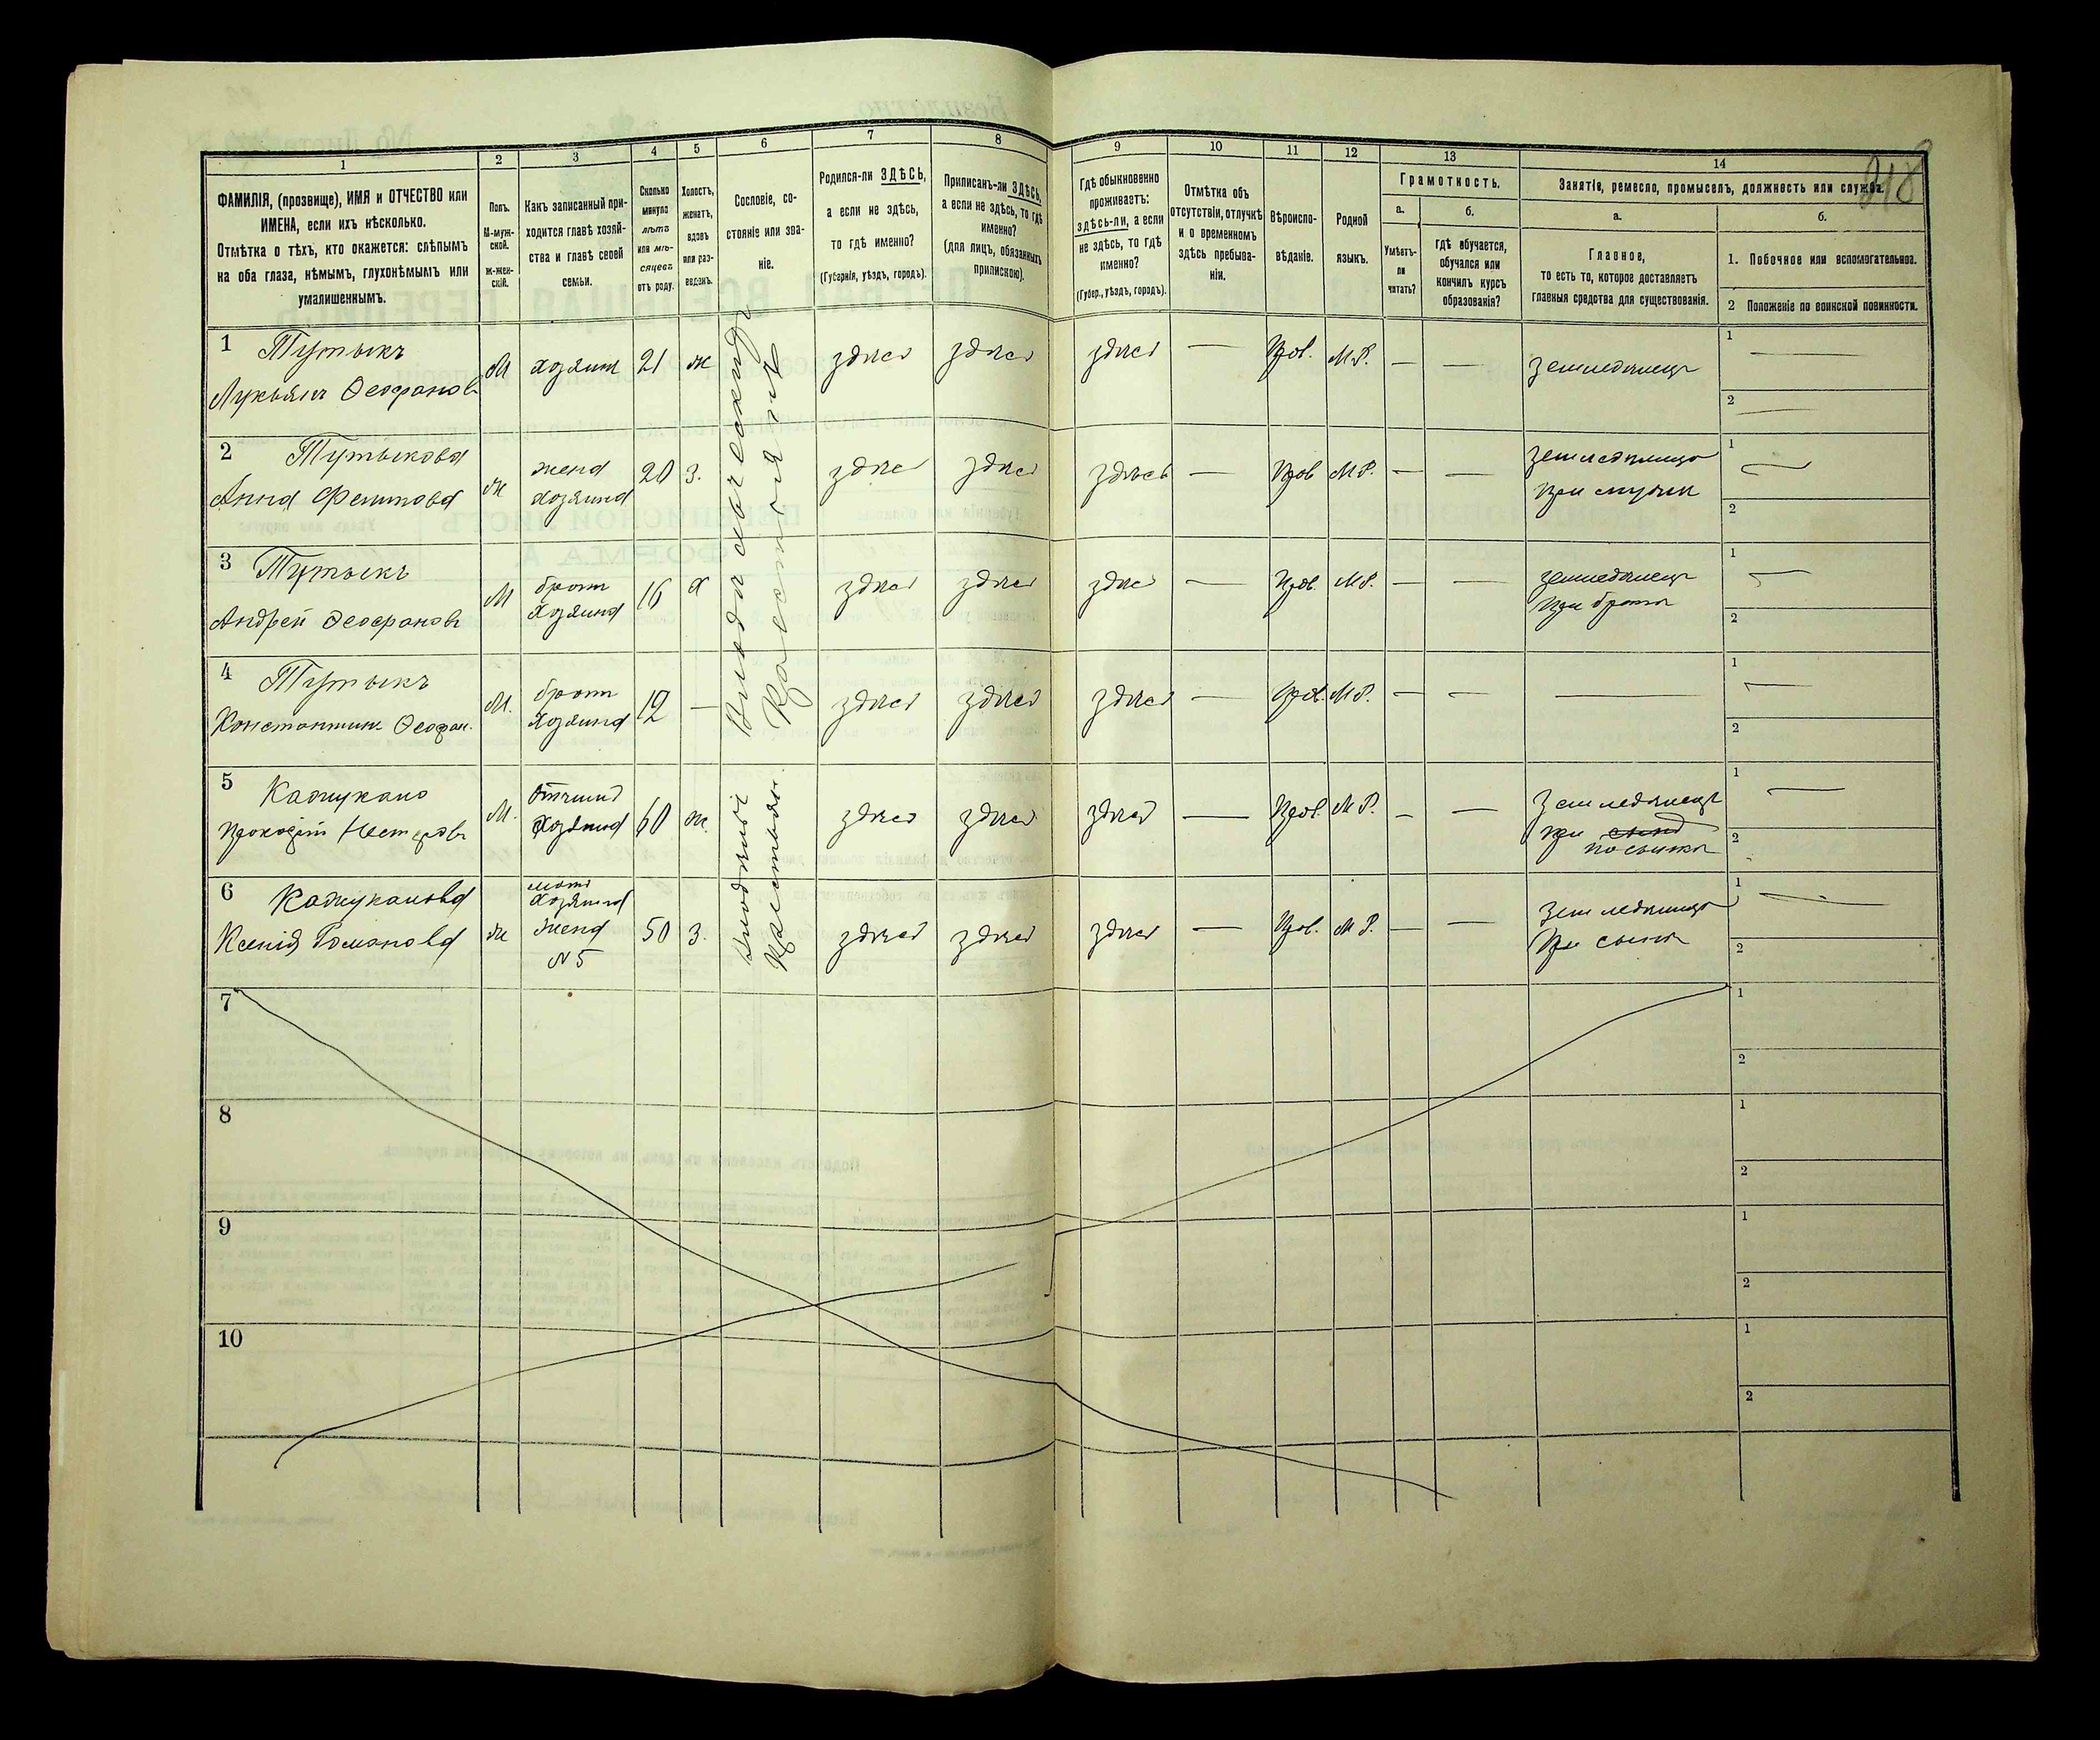 218
1 2 3 4 5 6 7 8 9 10 11 12 13 14
ФАМИЛІЯ, (прозвище), ИМЯ и ОТЧЕСТВО или
ИМЕНА, если ихъ нѣсколько.
Отмѣтка о тѣхъ, кто окажется: слѣпымъ
на оба глаза, нѣмымъ, глухонѣмымъ или
умалишеннымъ.
Полъ.
М-муж-
ской.
Ж-жен-
скій.
Какъ записанный при-
ходится главѣ хозяй-
ства и главѣ своей
семьи.
Сколько
минуло
лѣтъ
или мѣ-
сяцевъ
отъ роду.
Холостъ,
женатъ,
вдовъ
или раз-
веденъ.
Сословіе, со-
стояніе или зва-
ніе.
Родился-ли ЗДѢСЬ,
а если не здѣсь,
то гдѣ именно?
(Губернія, уѣздъ, городъ).
Приписанъ-ли ЗДѢСЬ,
а если не здѣсь, то гдѣ
именно?
(для лицъ, обязанныхъ
припискою).
Гдѣ обыкновенно
проживаетъ:
здѣсь-ли, а если
не здѣсь, то гдѣ
именно?
(Губер., уѣздъ, городъ).
Отмѣтка объ
отсутствіи, отлучкѣ
и о временномъ
здѣсь пребыва-
ніи.
Вѣроиспо-
вѣданіе.
Родной
языкъ.
Грамотность.
а.
Умѣетъ-
ли
читать?
б.
гдѣ обучается,
обучался или
кончилъ курсъ
образованія?
Занятіе, ремесло, промыселъ, должность или служба.
а.
Главное,
то есть то, которое доставляетъ
главныя средства для существованія.
б.
1. Побочное или вспомогательное.
2 Положеніе по воинской повинности.
1 Тутыкъ
Лукьянъ Феофановъ
М хозяинъ 21 ж
здѣсь здѣсь здѣсь — Прав. М.Р. — — земледѣлецъ
1 —
2 —
2 Тутыкова
Анна
ж жена
хозяина
20 З. здѣсь здѣсь здѣсь — Прав М.Р. — —
при мужѣ
1 —
2
3 Тутыкъ
Андрей Феофановъ
М братъ
хозяина
16 х здѣсь здѣсь здѣсь — Прав. М.Р. — — земледѣлецъ
при братѣ
1 —
2
4 Тутыкъ
Константинъ Феофан.
М. братъ
хозяина
12 — здѣсь здѣсь здѣсь — Прав. М.Р. — — —
1 —
2
5
Прокофій Нестеровъ
М. Отчимъ
хозяина
60 ж. здѣсь здѣсь здѣсь — Прав. М.Р. — — Земледѣлецъ
при сына
1 —
2
6
Ксенія Романова
ж мать
хозяина
жена
№ 5
50 З. здѣсь здѣсь здѣсь — Прав. М.Р. — —
при сынѣ
1 —
2
7
1
2
8
1
2
9
1
2
10
1
2